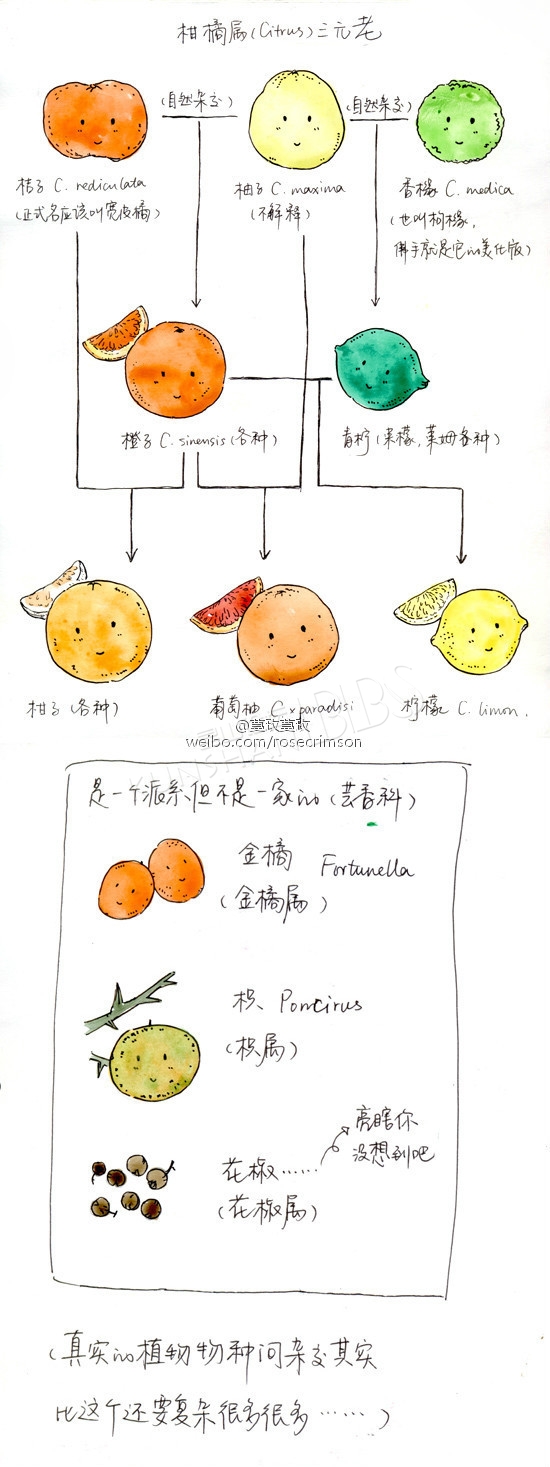 柑橘属(Citrus)三元老
(自然杂交)
(自然杂交)
桔子 C. rediculata
(正式名应该叫宽皮橘)
柚子 C. maxima
(不解释)
香橼 C. medica
(也叫枸橼,
佛手就是它的美化版)
橙子 C. sinensis (各种)
青柠 (来檬, 莱姆各种)
柑子 (各种)
葡萄柚 C × paradisi
柠檬 C. limon.
weibo.com/rosecrimson
是一个派系、但不是一家的 (芸香科)
金橘 Fortunella
(金橘属)
枳、Poncirus
(枳属)
亮瞎你
没想到吧
花椒……
(花椒属)
(真实的植物物种间杂交其实
比这个还要复杂很多很多……)